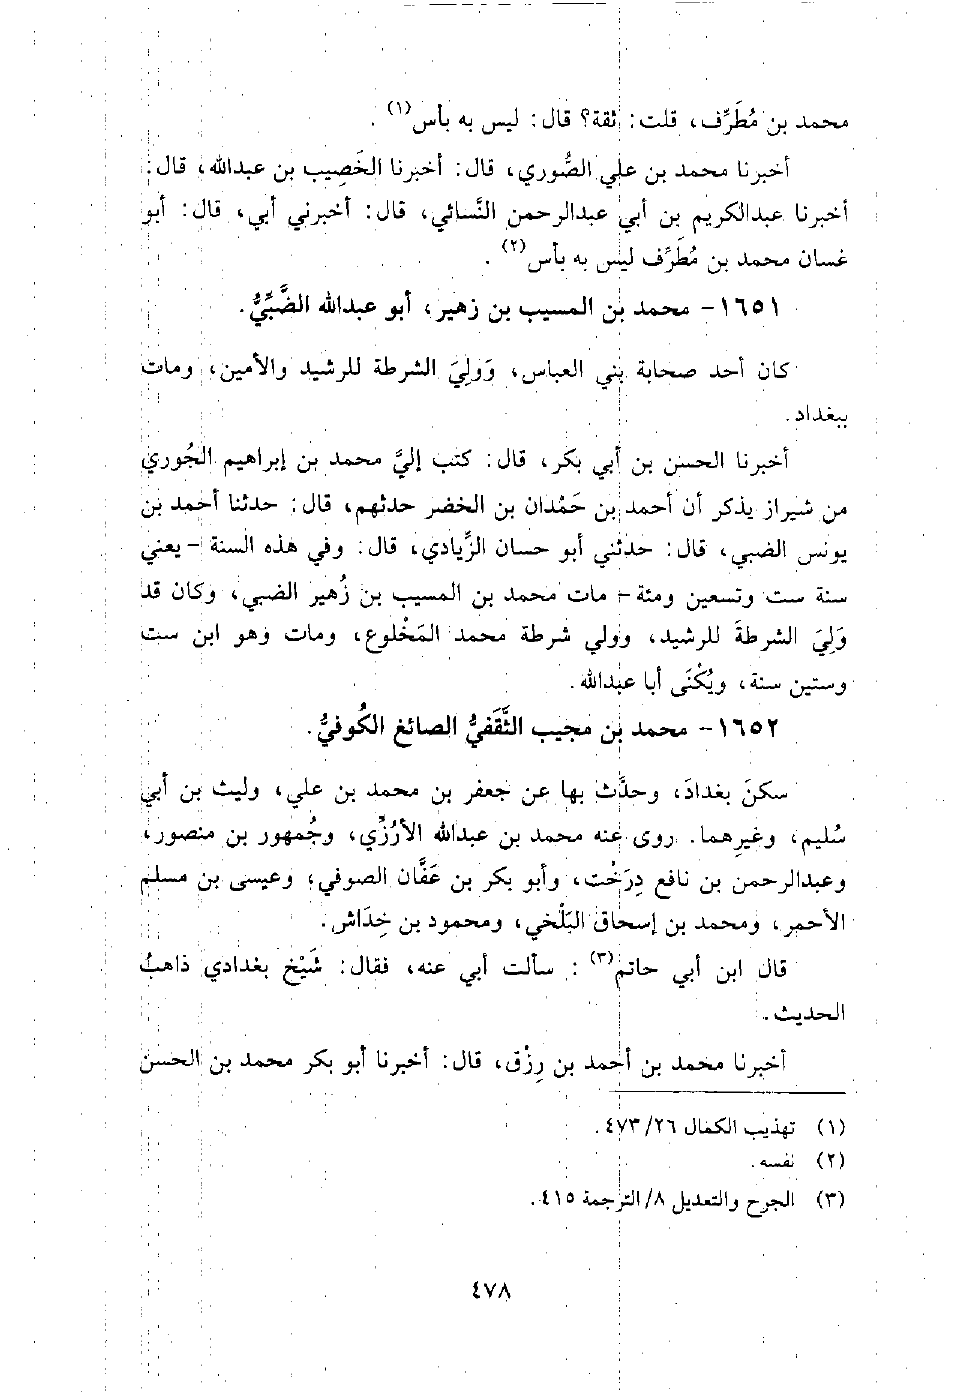 محمد بن مُطَرِّف، قلت: ثقة؟ قال: ليس به بأس(١).
أخبرنا محمد بن علي الصُّوري، قال: أخبرنا الخَصِيب بن عبدالله، قال:
أخبرنا عبدالكريم بن أبي عبدالرحمن النَّسائي، قال: أخبرني أبي، قال: أبو
غسان محمد بن مُطَرِّف ليس به بأس(٢).
١٦٥١- محمد بن المسيب بن زهير، أبو عبدالله الضَّبِّيُّ.
كان أحد صحابة بني العباس، وَوَلِيَ الشرطة للرشيد والأمين، ومات
ببغداد.
أخبرنا الحسن بن أبي بكر، قال: كتب إليَّ محمد بن إبراهيم الجُوري
من شيراز يذكر أن أحمد بن حَمْدان بن الخضر حدثهم، قال: حدثنا أحمد بن
يونس الضبي، قال: حدثني أبو حسان الزِّيادي، قال: وفي هذه السنة - يعني
سنة ست وتسعين ومئة - مات محمد بن المسيب بن زُهير الضبي، وكان قد
وَلِيَ الشرطةَ للرشيد، وولي شرطة محمد المَخْلوع، ومات وهو ابن ست
وستين سنة، ويُكْنَى أبا عبدالله.
١٦٥٢- محمد بن مجيب الثَّقَفيُّ الصائغ الكُوفيُّ.
سكنَ بغدادَ، وحدَّث بها عن جعفر بن محمد بن علي، وليث بن أبي
سُليم، وغيرِهما. روى عنه محمد بن عبدالله الأرُزِّي، وجُمهور بن منصور،
وعبدالرحمن بن نافع دِرَخْت، وأبو بكر بن عَفَّان الصوفي، وعيسى بن مسلم
الأحمر، ومحمد بن إسحاق البَلْخي، ومحمود بن خِدَاش.
قال ابن أبي حاتم(٣): سألت أبي عنه، فقال: شَيْخ بغدادي ذاهبُ
الحديث.
أخبرنا محمد بن أحمد بن رِزْق، قال: أخبرنا أبو بكر محمد بن الحسن
(١) تهذيب الكمال ٢٦/ ٤٧٣.
(٢) نفسه.
(٣) الجرح والتعديل ٨/ الترجمة ٤١٥.
٤٧٨